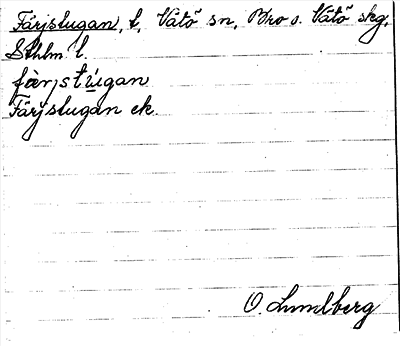 Färjstugan, t, Vätö sn, Bro o. Vätö skg,
Sthlm l.
fàrjstúgan
Färjstugan ek.
O. Lundberg